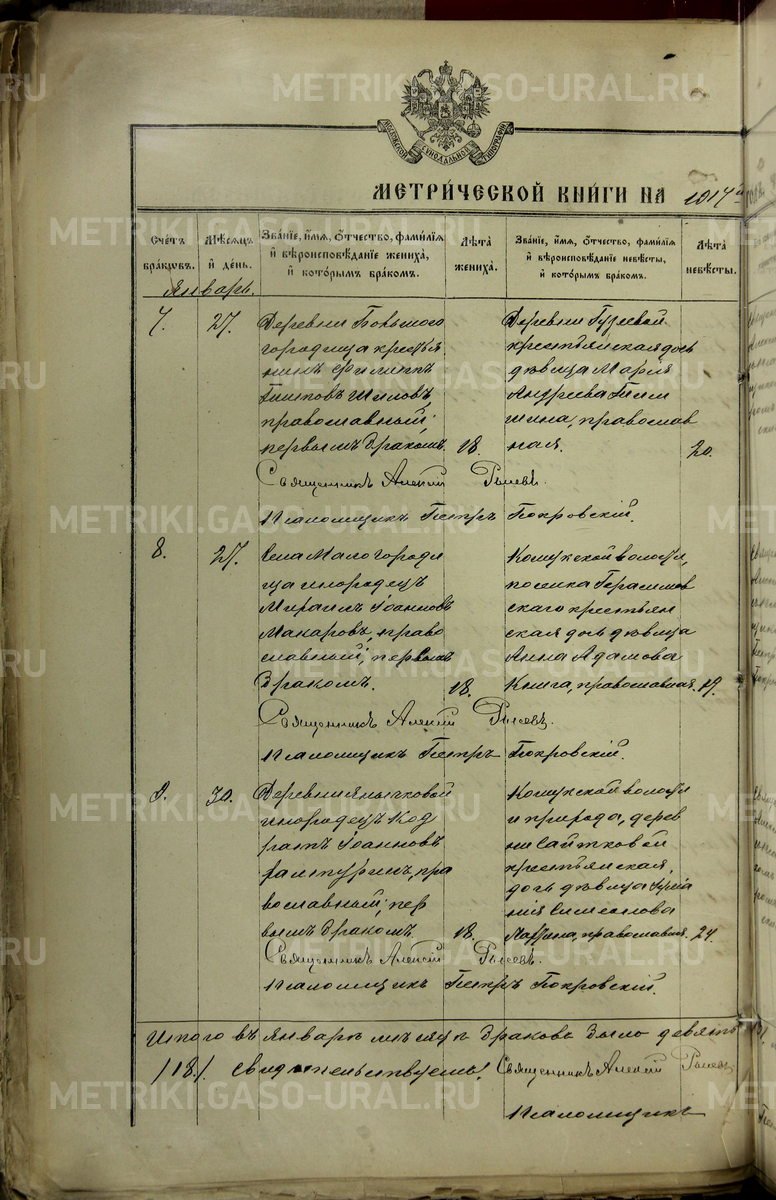 METRIKI.GASO-URAL.RU
МОСКОВСКОЙ СѴНОДАЛЬНОЙ ТИПОГРАФІИ
МЕТРИ́ЧЕСКОЙ КНИ́ГИ НА 1917
Счетъ бракѡвъ.
Мѣсяцъ и҆ день.
Зва́нїе, и҆́мѧ, ѻ҆́тчество, фами́лїѧ и҆ вѣроисповѣ́данїе жениха̀, и҆ кото́рымъ бра́комъ.
Лѣ́та жениха̀.
Зва́нїе, и҆́мѧ, ѻ҆́тчество, фами́лїѧ и҆ вѣроисповѣ́данїе невѣ́сты, и҆ кото́рымъ бра́комъ.
Лѣ́та невѣ́сты.
Январь.
7. 27. Деревни Большого
городища крестья
нинъ Филиппъ
Шиловъ,
православный;
первымъ бракомъ. 18.
Деревни Гузеевой
крестьянская дочь
дѣвица Марія
Андреева
православ
ная. 20.
Священникъ Алексій
Псаломщикъ Петръ Покровскій.
8. 27. Села Мало городи
ща инородецъ
Михаилъ Іоанновъ
Макаровъ, право
славный; первымъ
бракомъ. 18.
Кошукской волости,
поселка Герасимов
скаго крестьян
ская дочь дѣвица
Анна Адамова
Книга, православная. 19.
Священникъ Алексій
Псаломщикъ Петръ Покровскій.
9. 30. Деревни Янычковой
инородецъ Код
ратъ Іоанновъ
пра
вославный; пер
вымъ бракомъ. 18.
Кошукской волости
и прихода, дерев
ни Сайтковой
крестьянская
дочь дѣвица
Симеонова
православная. 24.
Священникъ Алексій
Псаломщикъ Петръ Покровскій.
Итого въ январѣ мѣсяцѣ браковъ было девять
Свидѣтельствуемъ: Священникъ Алексій
Псаломщикъ